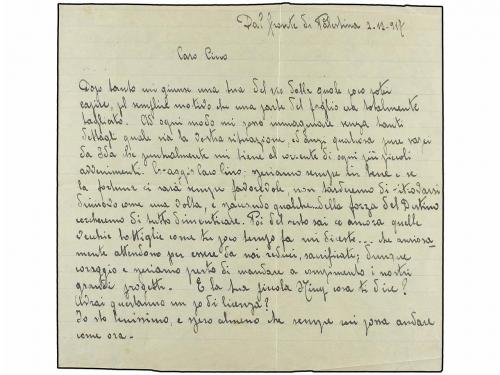 Dal fronte di Palestina 2-12-917
Caro Cino
Dopo tanto mi giunse una tua del dalle quale poco potei
capire, pel semplice motivo che una parte del foglio era totalmente
tagliato. Ad ogni modo mi sono immaginare senza tanti
dettagli quale sia la vostra situazione, di qualcosa pure
da che puntualmente mi tiene al corrente di ogni più piccoli
avvenimenti. Coraggio caro Cino; speriamo sempre in bene e se
la fortuna ci sarà sempre favorevole, non tarderemo di ritrovarsi
di nuovo come una volta, e qualche della forza del Destino
cercheremo di tutto dimenticare. Poi del resto sai ce ancora quelle
vecchie bottiglie come tu poco tempo fa mi dicesti... che ansiosa-
mente attendono per essere da noi reduci, sacrificati; dunque
coraggio e speriamo presto di mandare a compimento i nostri
grandi progetti. E la tua piccola cosa ti dice?
Avrai quest'anno un po di licenza?
Io sto benissimo, e spero almeno che sempre mi possa andare
come ora.-